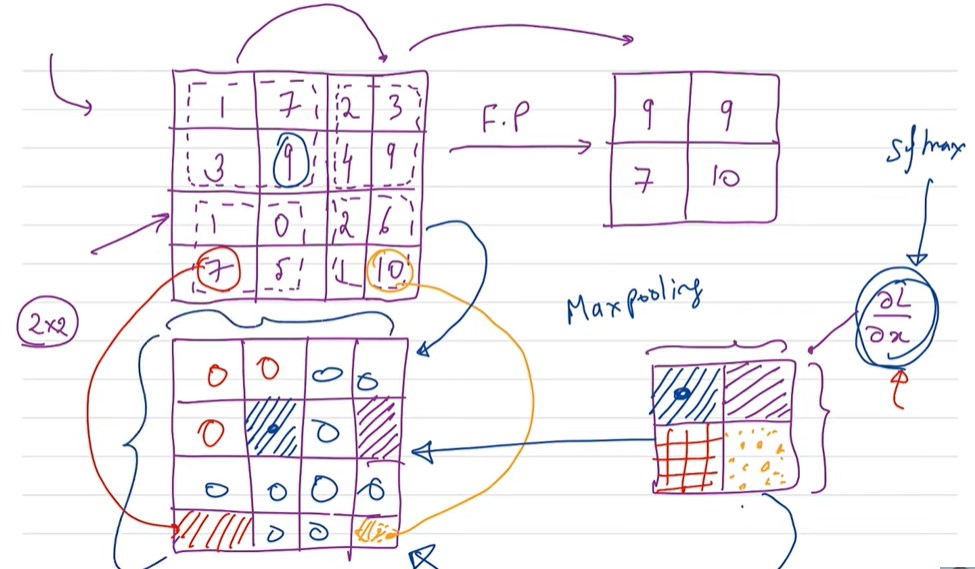 1 7 2 3
3 9 4 9
1 0 2 6
7 5 1 10
F.P
9 9
7 10
Sftmax
2x2
Maxpooling
∂L
∂x
0 0 0 0
0 0
0 0 0 0
0 0